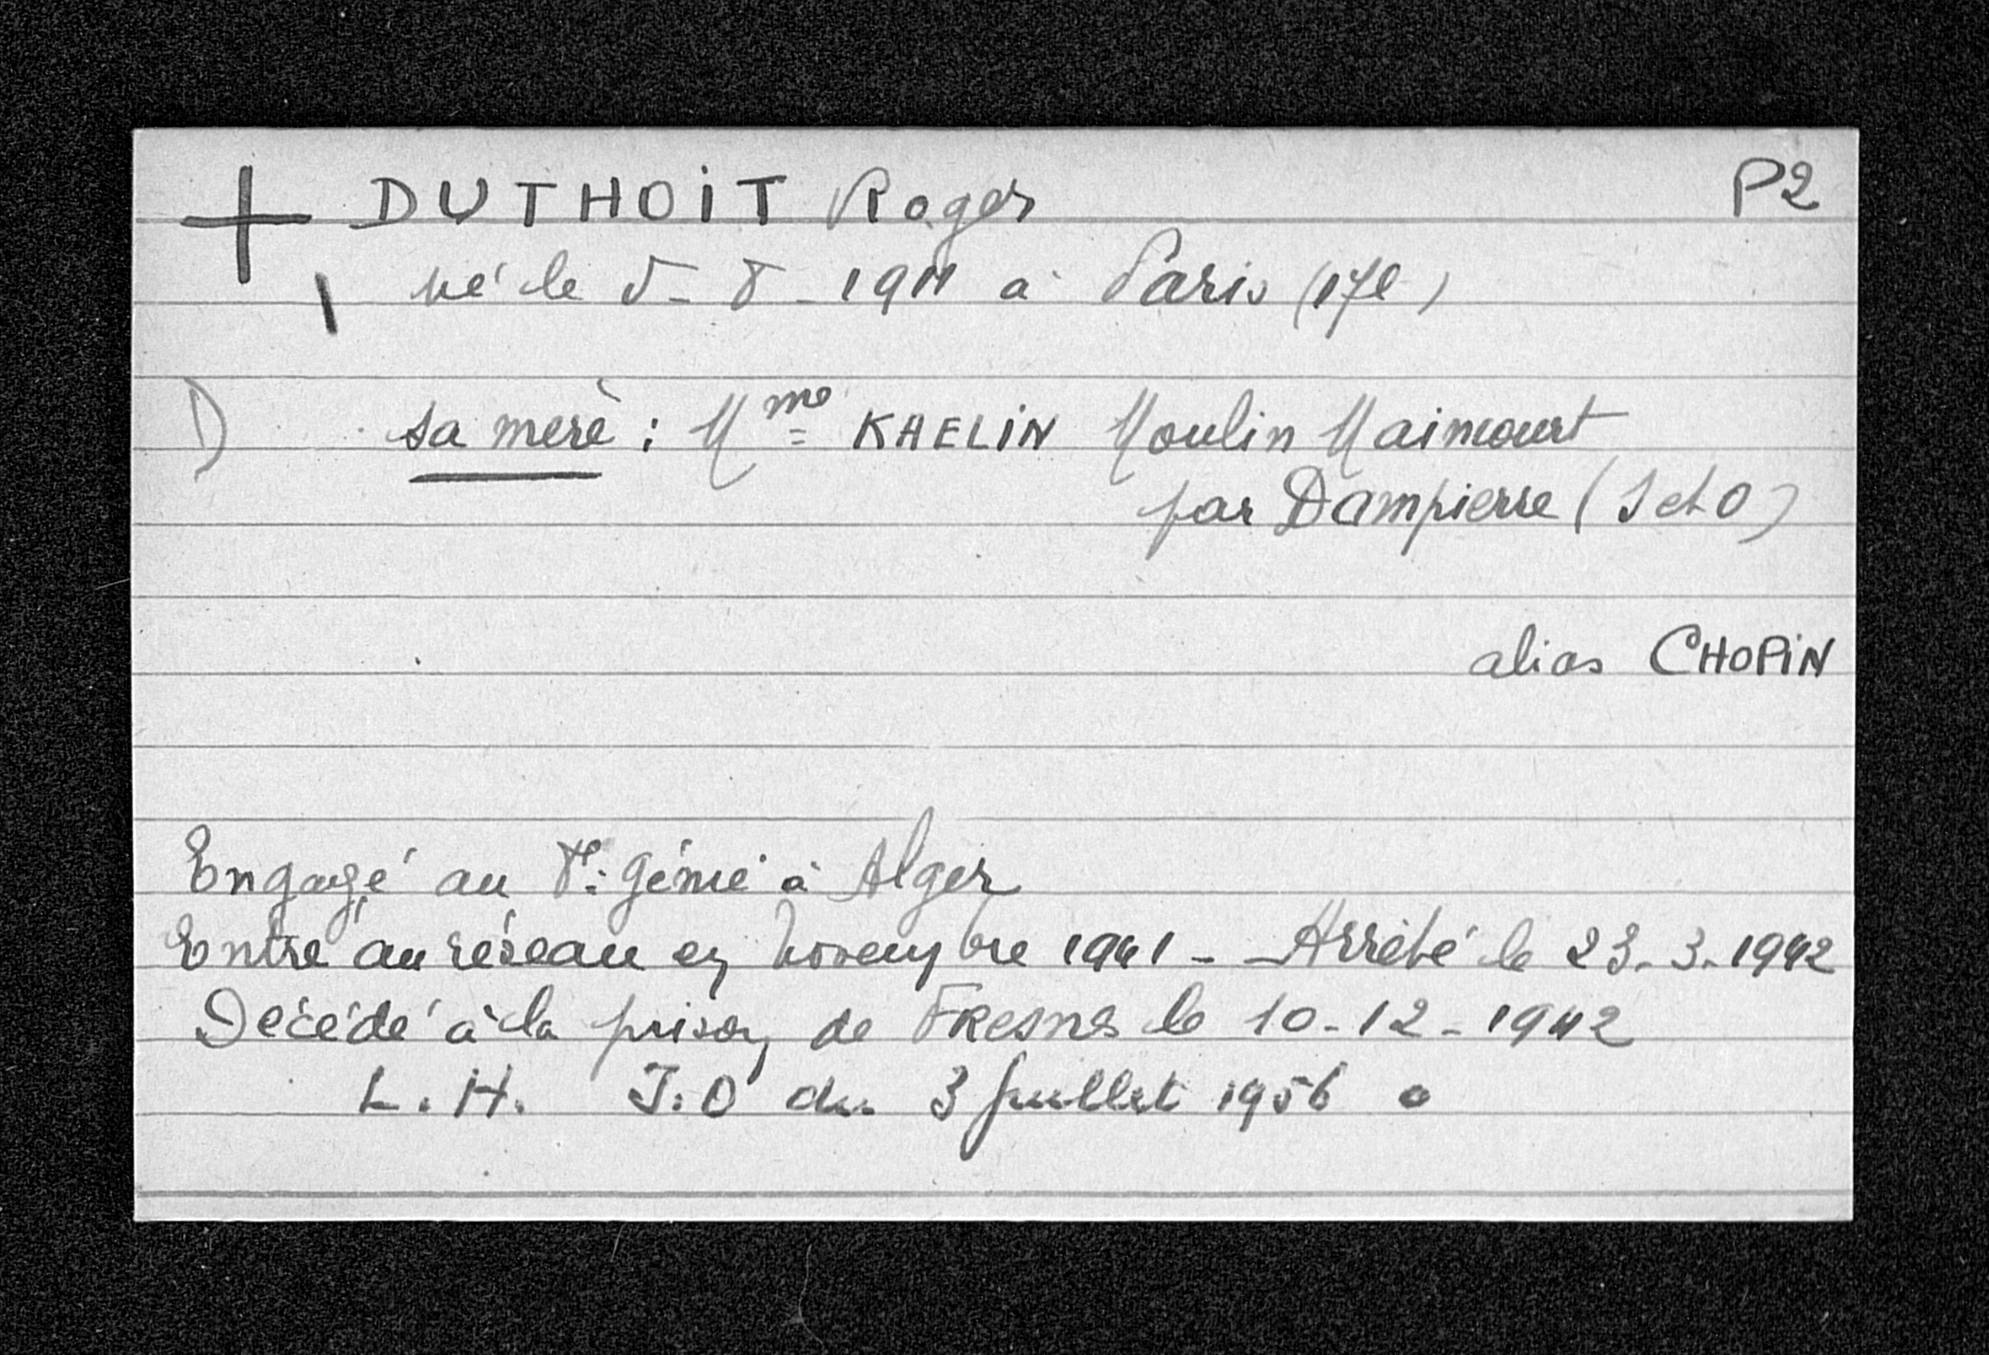 + DUTHOIT Roger P2
né le 5 - 8 - 1911 à Paris (17e)
D) sa mère : Mme KHELIN Moulin Maincourt
par Dampierre (S et O)
alias CHOPIN
Engagé au 8e génie à Alger
Entré au réseau en novembre 1941 - Arrêté le 23.3.1942
Décédé à la prison de Fresnes le 10-12-1942
L.H. J.O du 3 juillet 1956